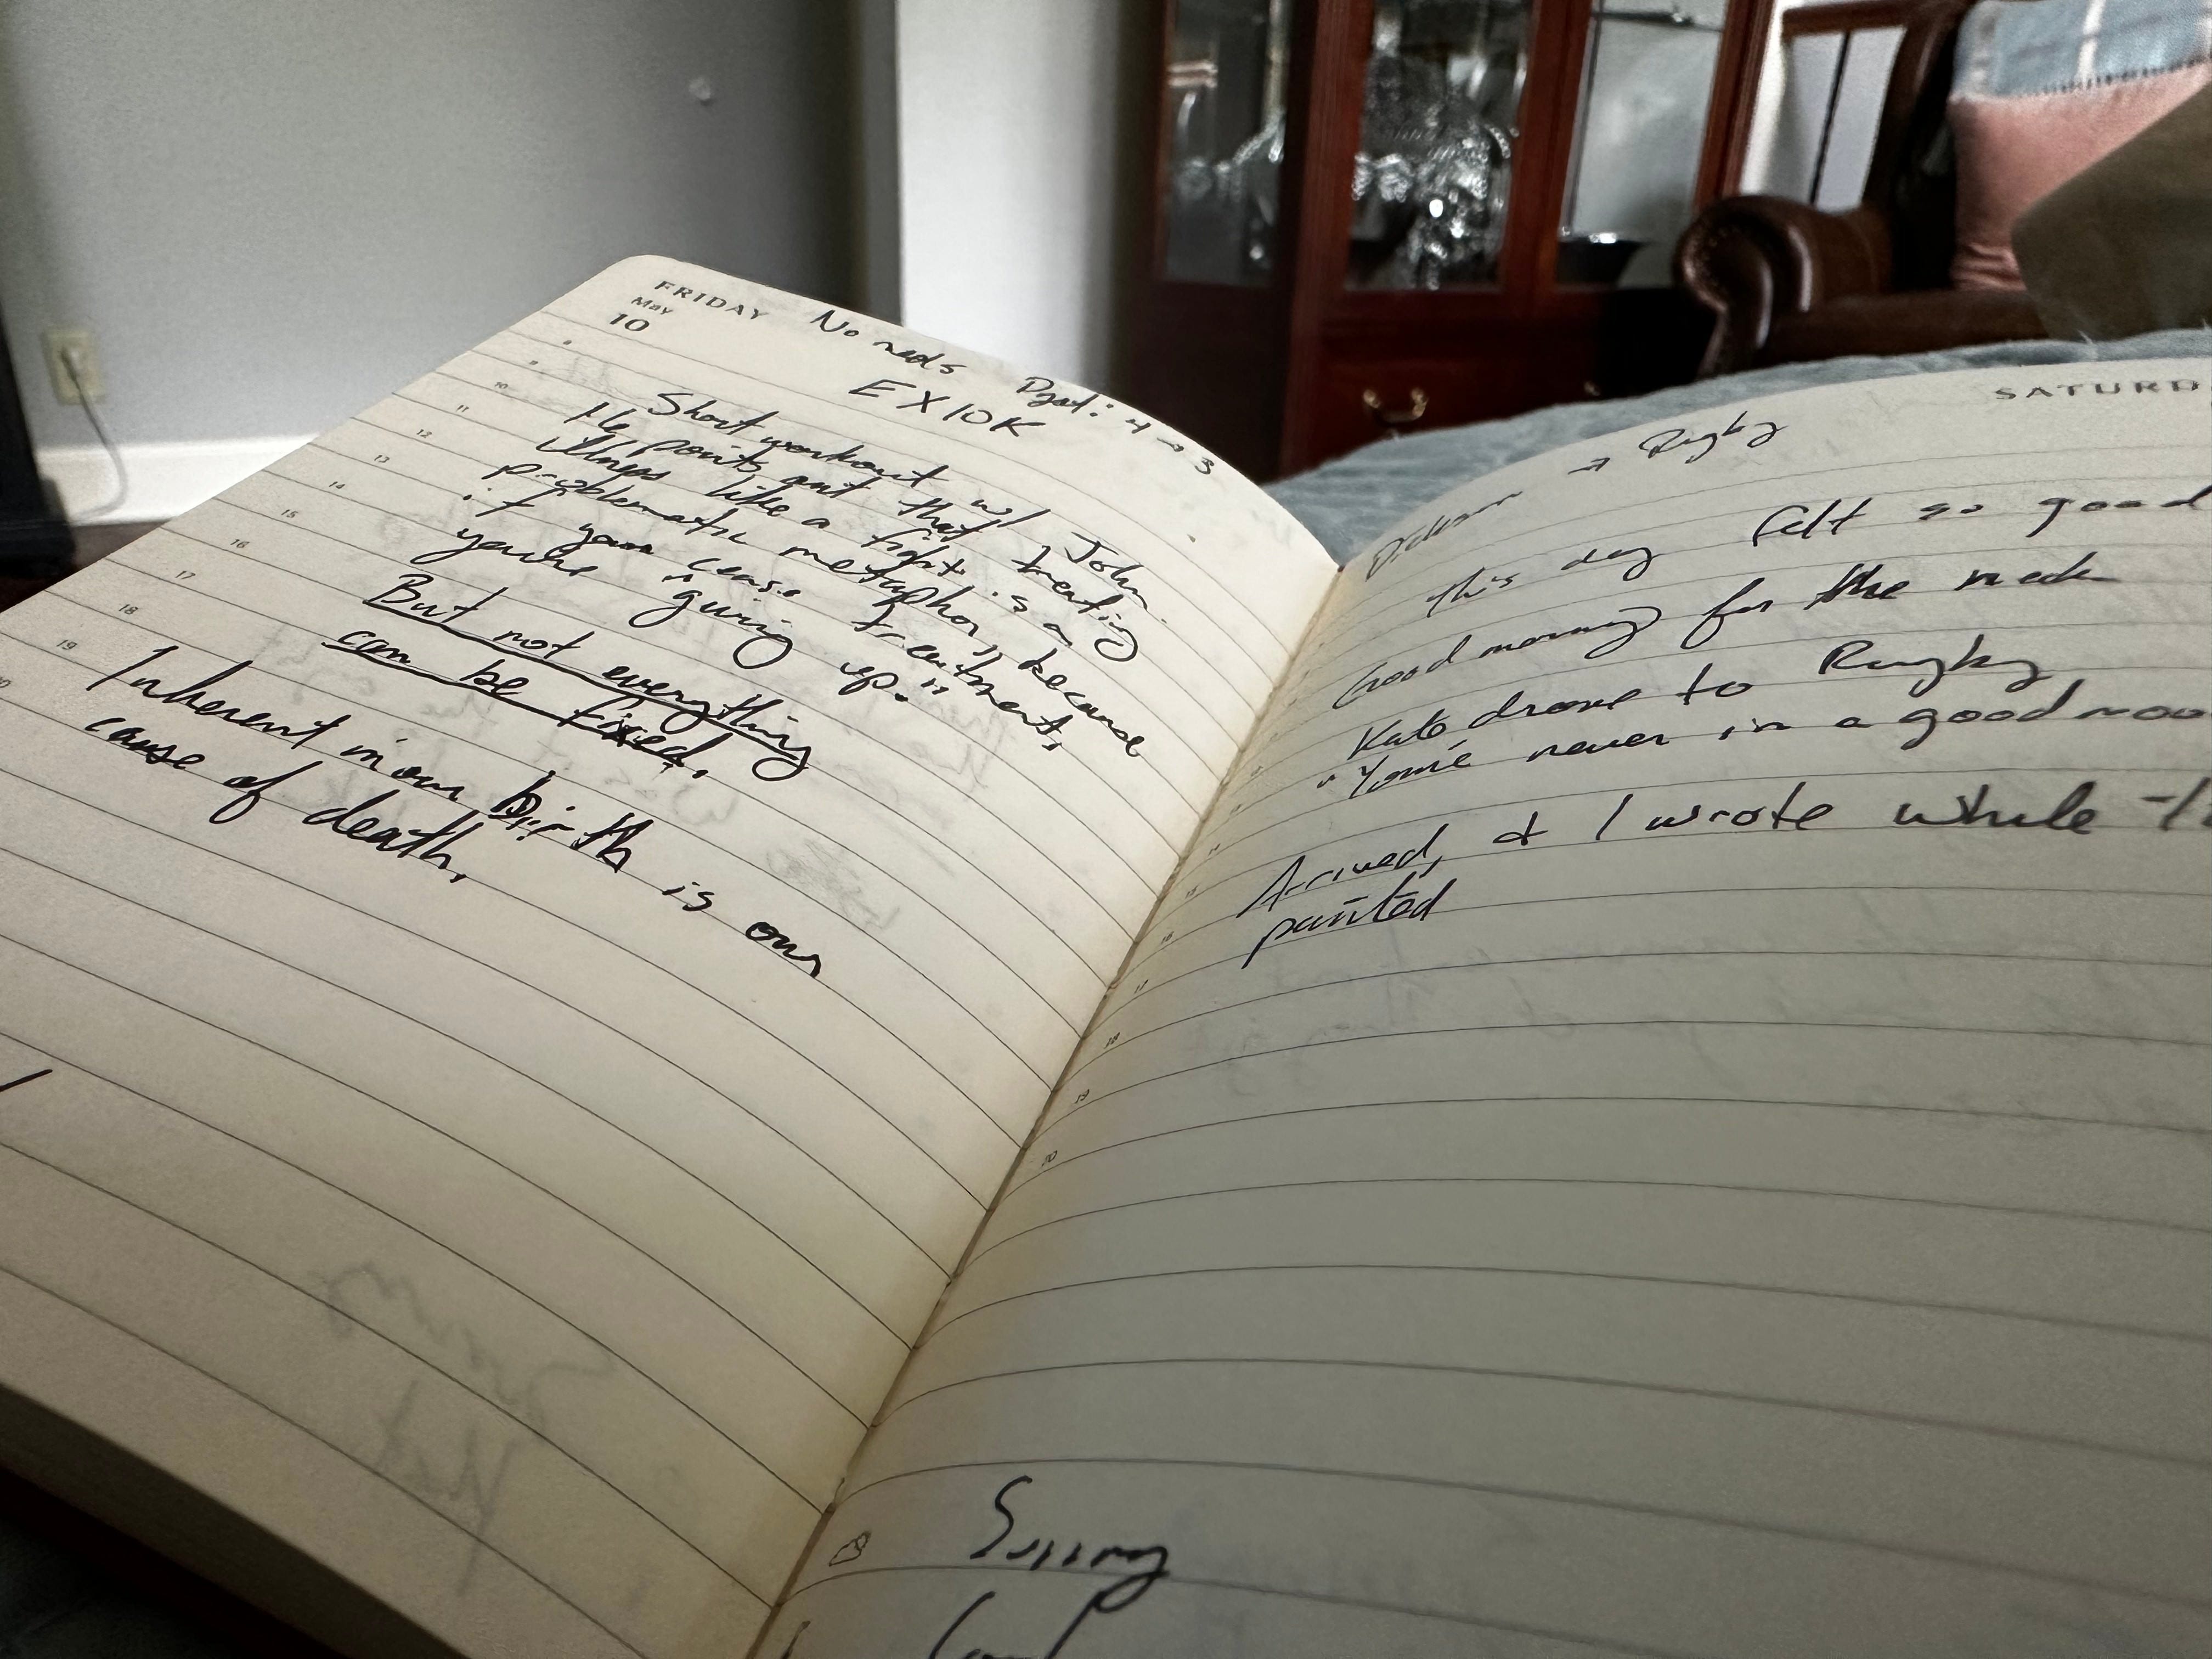 FRIDAY No meds Dyat: 4 → 3
May
10
EX10K
8
9
10
11
12
13
14
15
16
17
18
19
20
Short workout w/ John.
He points out that treating
illness like a fight is a
problematic metaphor, because
if you cease treatment,
you're "giving up."
But not everything
can be fixed.
Inherent in our birth is our
cause of death.
SATURD
Dickson → Rugby
This day felt so good
Good morning for the
Kate drove to Rugby
"You're never in a good moo
Arrived, & I wrote while
painted
14
15
16
17
18
19
20
Sunny